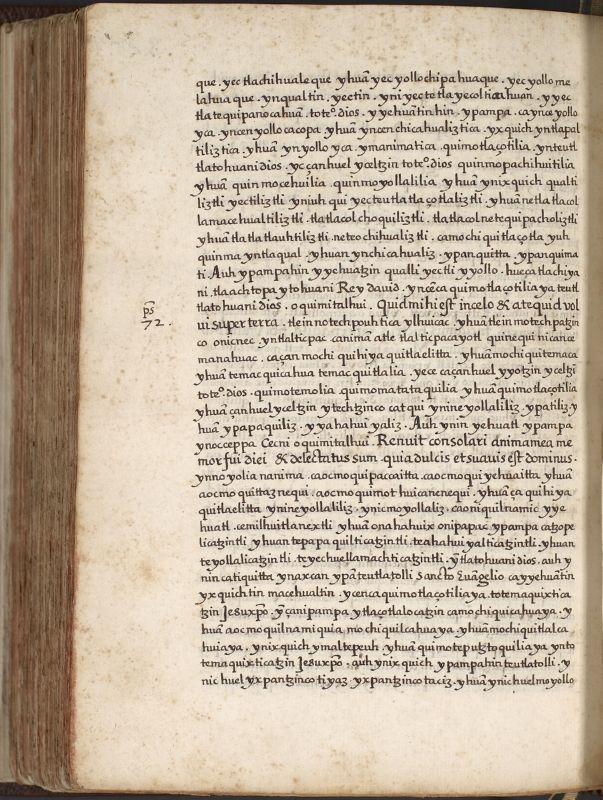 que. yec tlachihuale que yhuã yec yollo chipa huaque. yec yollo me
lahua que. yn qual tin. yectin. yni yec te tla yecol ticahuan. y yec
tla te qui pano cahuã. toteº. dios. y yehuã tin hin. y pampa. ca ynce yollo
yca. yncen yollo cacopa yhuã yncen chicahualiz tica. yx quich yntlapal
tiliz tica. yhuã yn yollo yca. y manimatica. quimo tlaçotilia. ynteutl
tlatohuani dios. yc çan huel yceltzin toteº. dios quinmo pachihui tilia
yhuã quin mocehuilia quinmo yollalilia yhuã ynix quich qualti
liztli yectiliztli yniuh qui yec teutla tlaçotlaliztli. yhuã netla tlacol
lamacehualtiliztli. tlatlacol choquiliztli. tlatlacol netequipacholiztli
yhuã tlatlatlauhtiliztli. neteochihualiztli. camo chi quitlaçotla yuh
quinma yntlaqual. yhuan ynchicahualiz. ypan quitta. ypan quima
ti. Auh ypampa hin yyehuatzin qualli yectli yyollo. hueca tlachiya
ni. tlaachtopa ytohuani Rey david. yncẽca quimo tlaçotiliaya teutl
tlatohuani dios. oquimitalhui. Quid mihi est in celo & a te quid vol
ps
72.
ui super terra. tlein notech pouh tica ylhuicac. yhuã tlein motechpatzin
co onicnec yntlalticpac canimã atle tlalticpacayotl quinequi nicance
manahuac. caçan mochi quihiya quitlaelitta. yhuã mochi quitemaca
yhuã temac quicahua temac quitlalia. yece caçan huel yyotzin yceltzi
toteº. dios. quimotemolia. quimomatataquilia. yhuã quimo tlaçotilia
yhuã çan huel yceltzin ytechtzinco catqui ynineyollaliliz. ypatiliz y
huã ypapaquiliz. yyahahuiyaliz. Auh ynin yehuatl ypampa
ynocceppa Cecni oquimitalhui. Renuit consolari anima mea me
mor fui diei & delectatus sum. quia dulcis et suauis est dominus.
ynno yolia nanima. caocmo quipaccaitta. caocmo qui yehuaitta yhuã
aocmo quittaznequi. aocmo quimothuicanenequi. yhuã ça quihiya
quitlaelitta yni neyollaliliz. ynicmoyollaliz. caoni quilnamic yye
huatl. cemilhuitlanextli yhuã ona hahuix onipapac ypampa catzope
licatzintli yhuan tepapaquilticatzintli. teahahuiyalticatzintli. yhuan
teyollalicatzintli. teyecnellamachticatzintli. ỹtlatohuani dios. auh y
nin catiquitta ynaxcan ypã teutlatolli Sancto Euãgelio ca yyehuãtin
yxquichtin macehualtin. ycenca quimo tlaçotiliaya. totemaquixtica
tzin Jesuxpo. yçanipampa ytlaçotlalocatzin camochi quicahuaya. y
huã aocmo quilnamiquia, mochi quilcahuaya. yhuã mochi quitlalca
huiaya. ynixquich ynaltepeuh. yhuã quimotepotztoquiliaya ynto
temaquixticatzin Jesuxpo. auh ynixquich ypampa hin teutlatolli. y
nic huel yxpantzinco tiyaz. yxpantzinco taciz. yhuã ynic huel moyollo